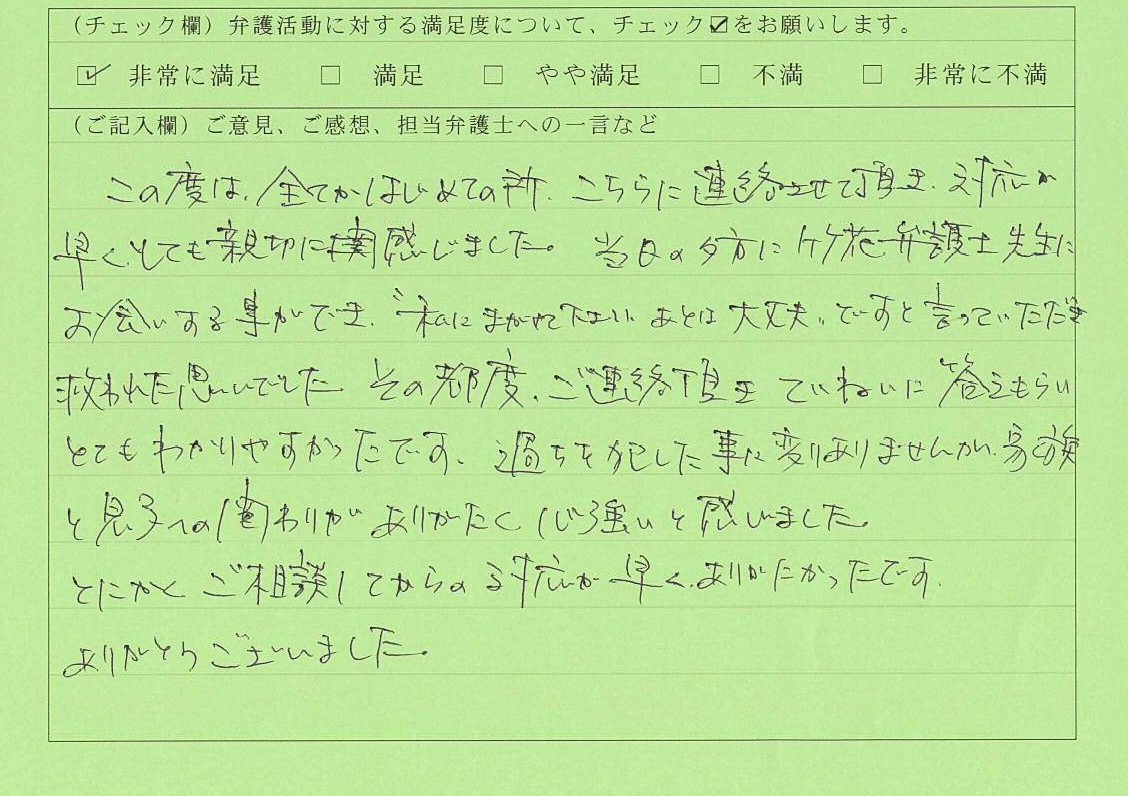 （チェック欄）弁護活動に対する満足度について、チェック☑をお願いします。
☑ 非常に満足 □ 満足 □ やや満足 □ 不満 □ 非常に不満
（ご記入欄）ご意見、ご感想、担当弁護士への一言など
この度は、全てがはじめての所、こちらに連絡させて頂き、対応が
早く、とても親切に感じました。当日の夕方に 弁護士先生に
お会いする事ができ、"私にまかせて下さい あとは大丈夫"ですと言っていただき
救われた思いでした その都度、ご連絡頂き ていねいに答えもらい
とてもわかりやすかったです、過ちを犯した事に変りありませんが、家族
と息子への関わりが ありがたく 心強いと感じました。
とにかく ご相談してからの対応が早く、ありがたかったです。
ありがとうございました。